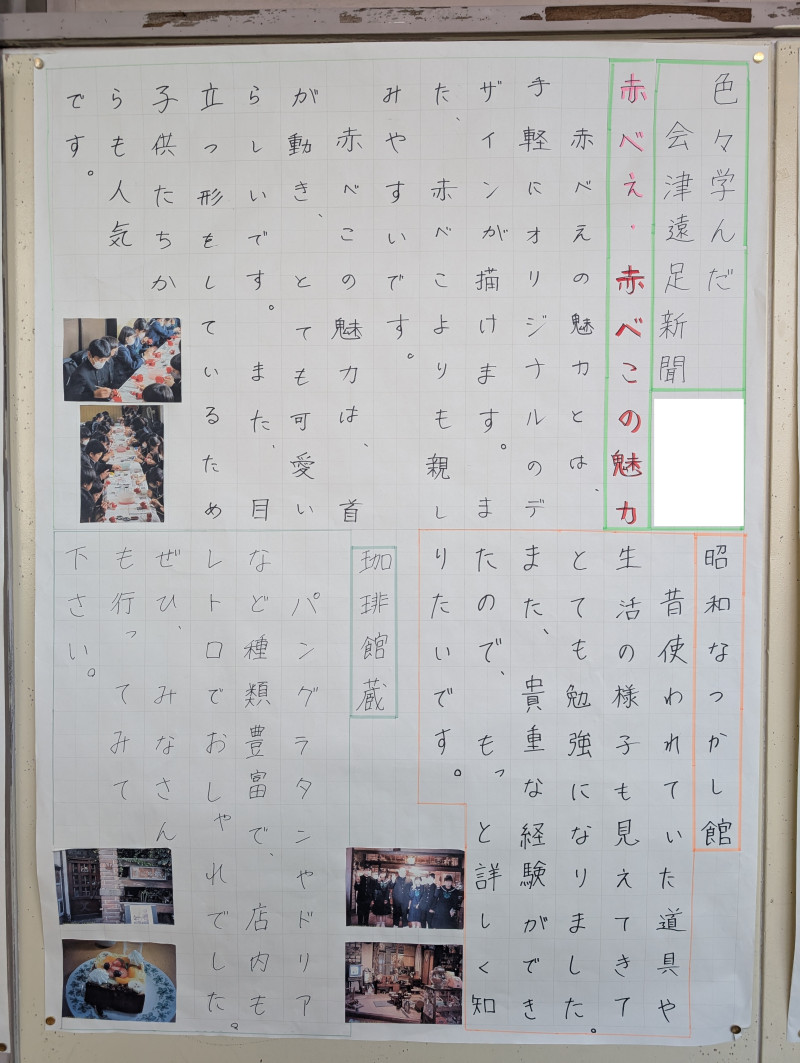 色々学んだ
会津遠足新聞
赤べえ・赤べこの魅力
赤べえの魅力とは、
手軽にオリジナルのデ
ザインが描けます。ま
た、赤べこよりも親し
みやすいです。
赤べこの魅力は、首
が動き、とても可愛い
らしいです。また、目
立つ形もしているため
子供たちか
らも人気
です。
昭和なつかし館
昔使われていた道具や
生活の様子も見えてきて
とても勉強になりました。
また、貴重な経験ができ
たので、もっと詳しく知
りたいです。
珈琲館蔵
パングラタンやドリア
など種類豊富で、店内も
レトロでおしゃれでした。
ぜひ、みなさん
も行ってみて
下さい。